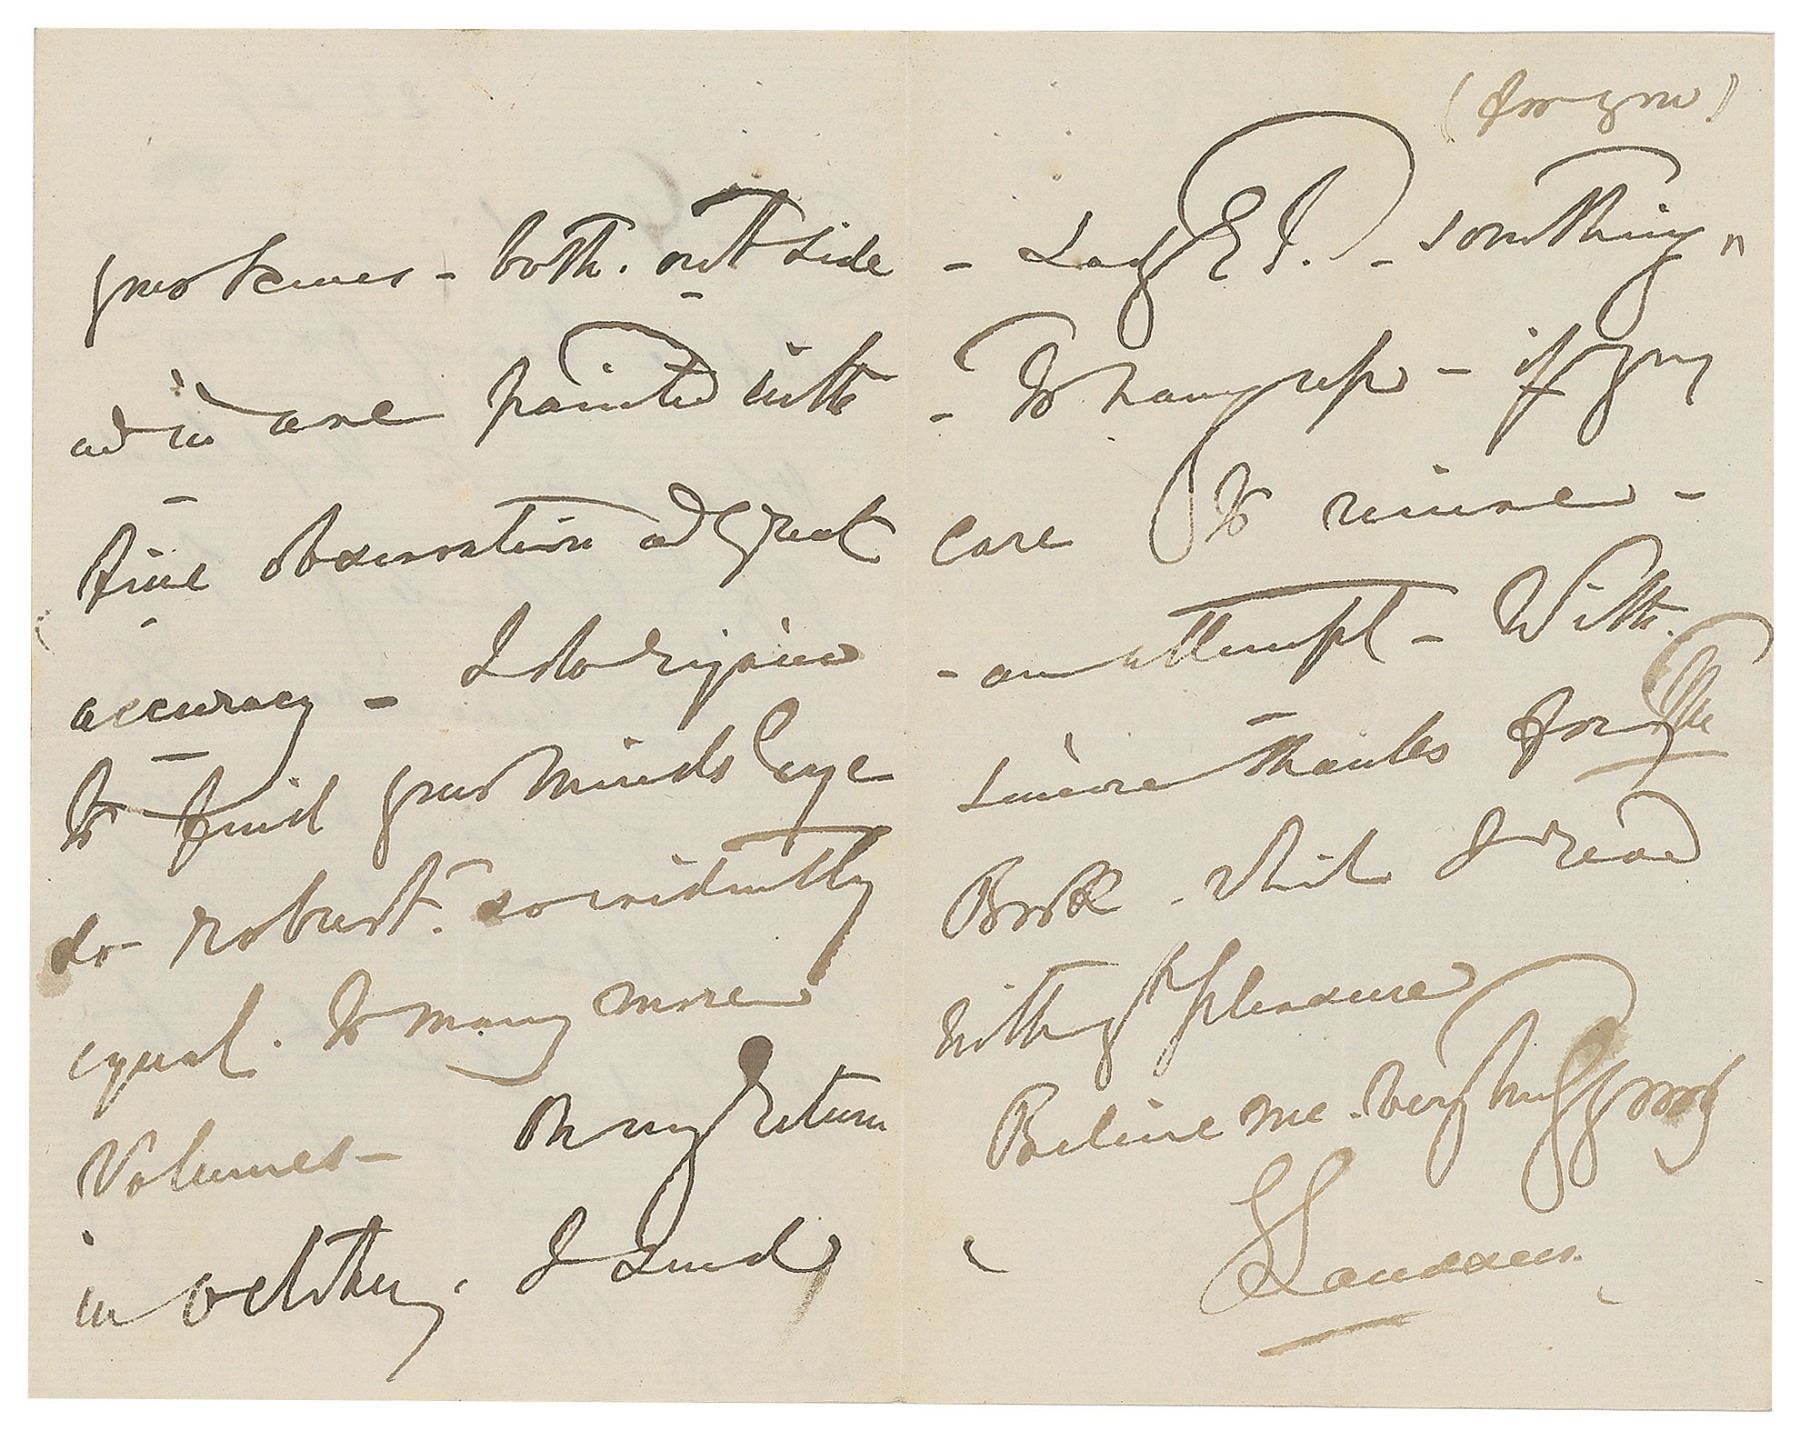 your scenes - both. out side
and in are painted with
fine observation and great
accuracy - I do rejoice
to find your minds Eye
so robust. so evidently
equal. to many more
Volumes - On my return
in October, I send
(for you)
- Lady E P. - something
- to hang up - if you
care to
- an attempt - With
sincere thanks for the
Book - which I read
with gt pleasure
Believe me. very truly yours
E Landseer.